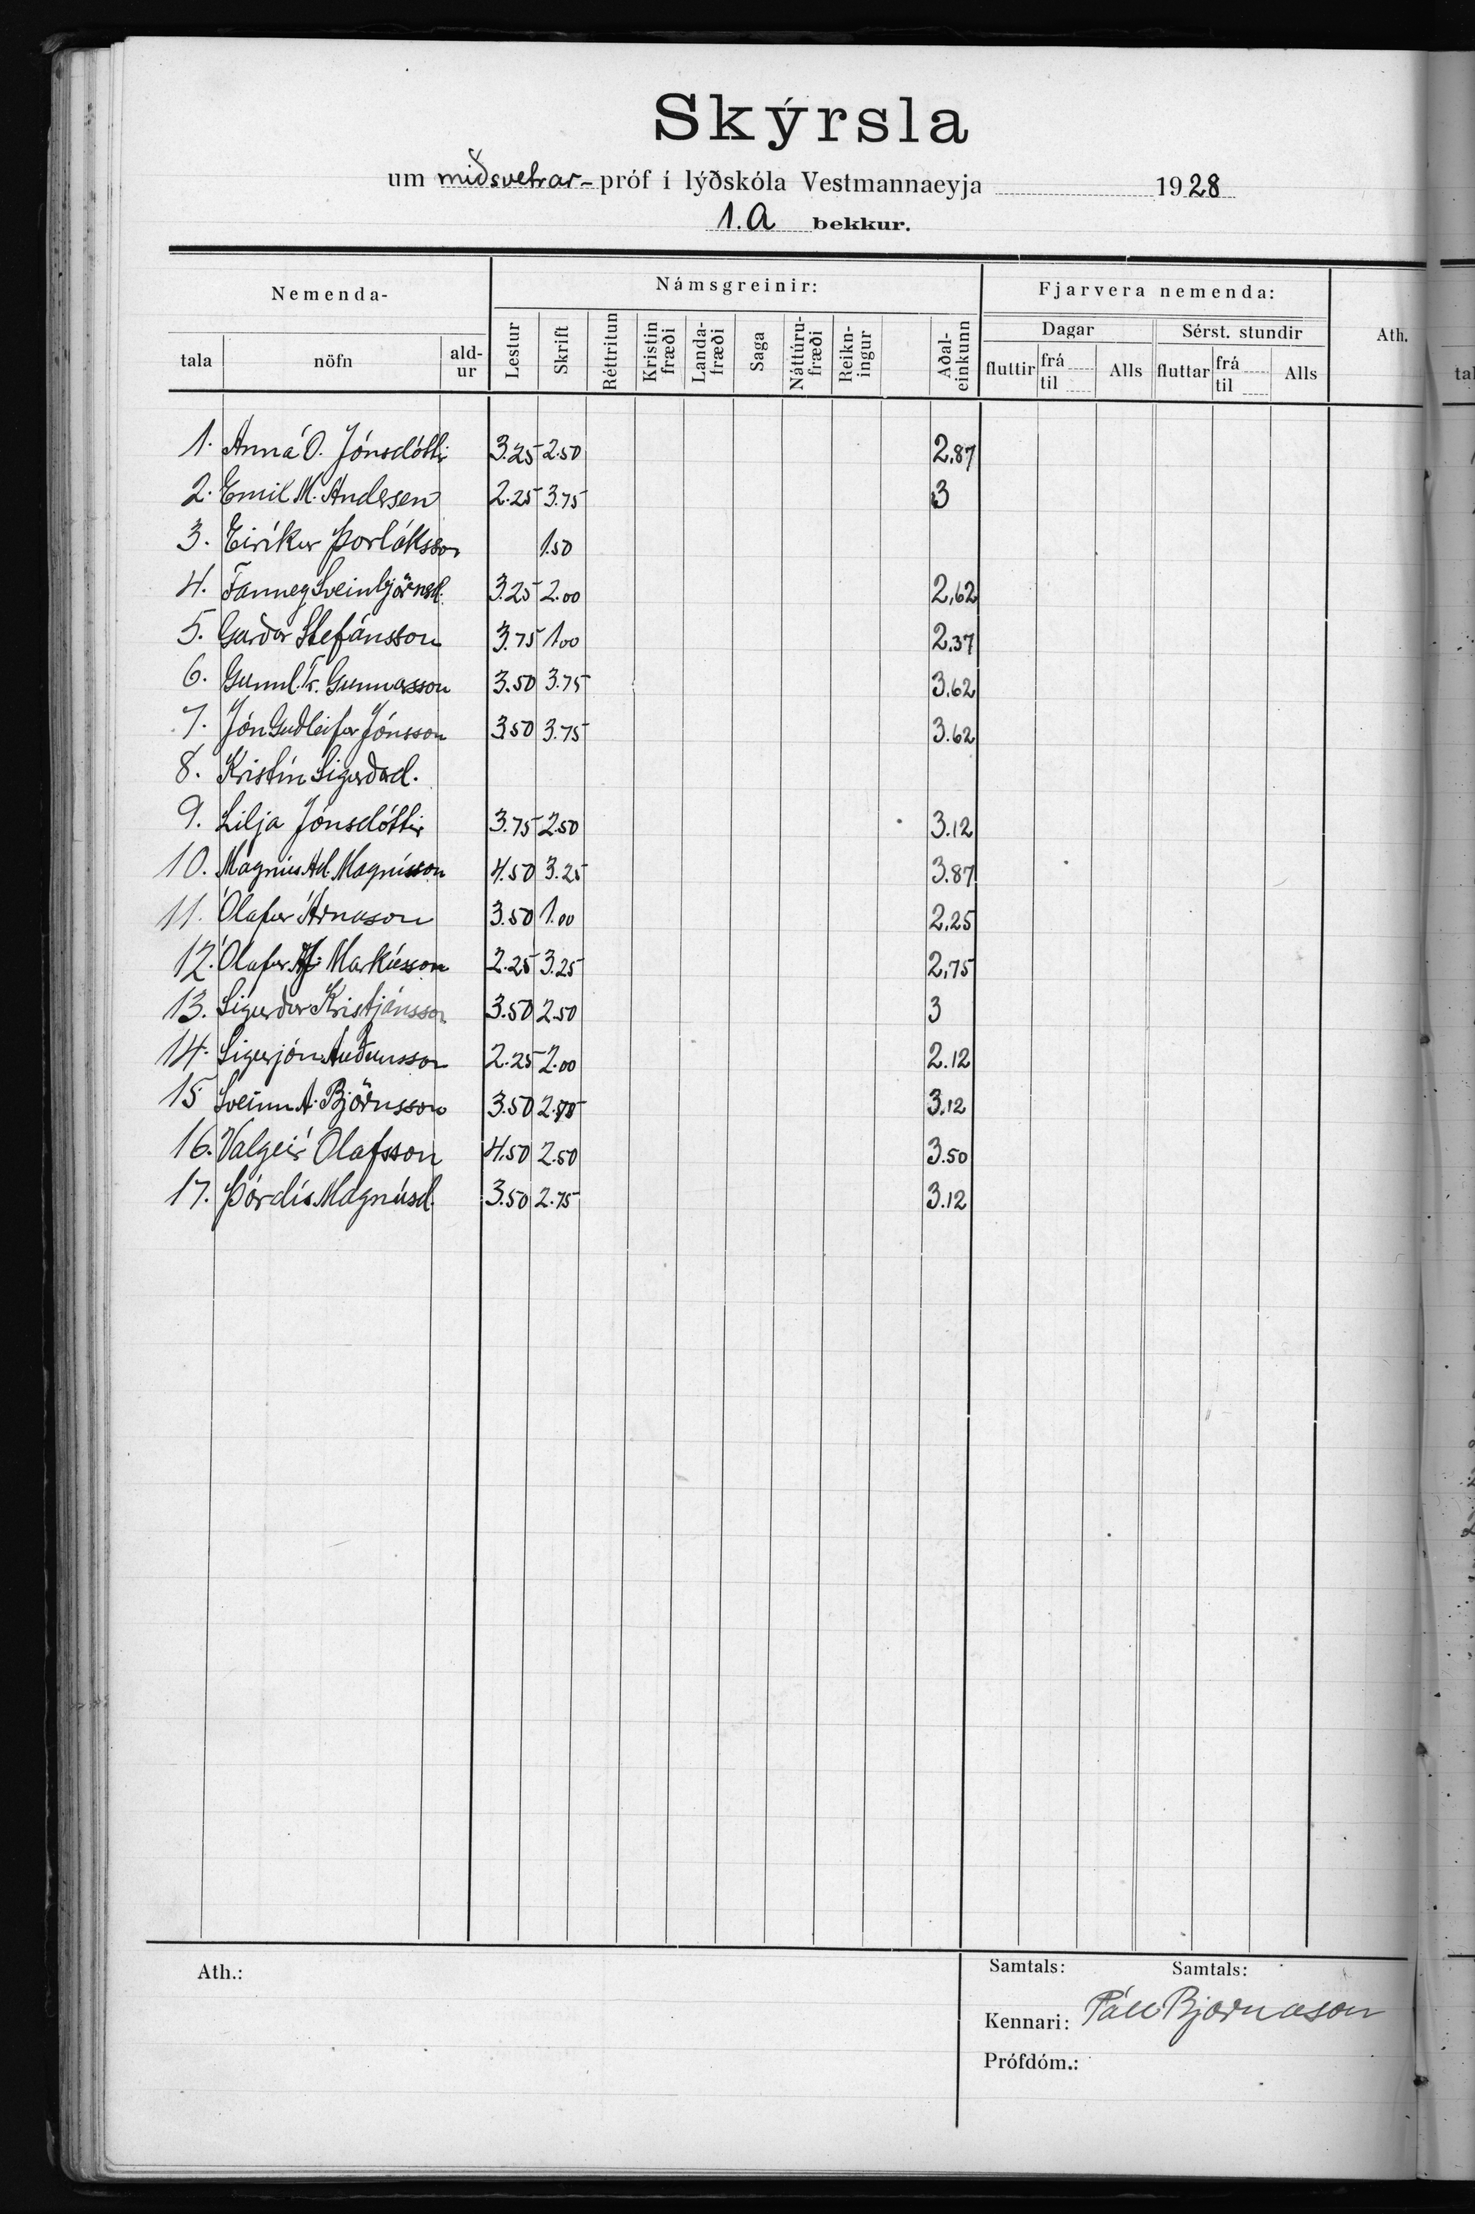 Skýrsla
um miðsvetrar- próf í lýðskóla Vestmannaeyja 1928
1. A bekkur.
Nemenda- Námsgreinir: Fjarvera nemenda: Ath.
tala nöfn ald-ur Lestur Skrift Réttritun Kristin fræði Landa-fræði Saga Náttúru-fræði Reikn-ingur Aðal-einkunn Dagar Sérst. stundir
fluttir frá til Alls fluttar frá til Alls
1. Anna Ó. Jónsdóttir 3.25 2.50 2.87
2. Emil M. Andersen 2.25 3.75 3
3. Eiríkur Þorláksson 1.50
4. Fanney Sveinbjörnsd. 3.25 2.00 2.62
5. Garðar Stefánsson 3.75 1.00 2.37
6. Gunnl. Tr. Gunnarsson 3.50 3.75 3.62
7. Jón Guðleifur Jónsson 3.50 3.75 3.62
8. Kristín Sigurðard.
9. Lilja Jónsdóttir 3.75 2.50 3.12
10. Magnús Ad. Magnússon 4.50 3.25 3.87
11. Ólafur Árnason 3.50 1.00 2.25
12. Ólafur Markússon 2.25 3.25 2.75
13. Sigurður Kristjánsson 3.50 2.50 3
14. Sigurjón Auðunsson 2.25 2.00 2.12
15 Sveinn A. Björnsson 3.50 2.75 3.12
16. Valgeir Ólafsson 4.50 2.50 3.50
17. Þórdís Magnúsd. 3.50 2.75 3.12
Ath.: Samtals: Samtals:
Kennari: Páll Bjarnason
Prófdóm.: